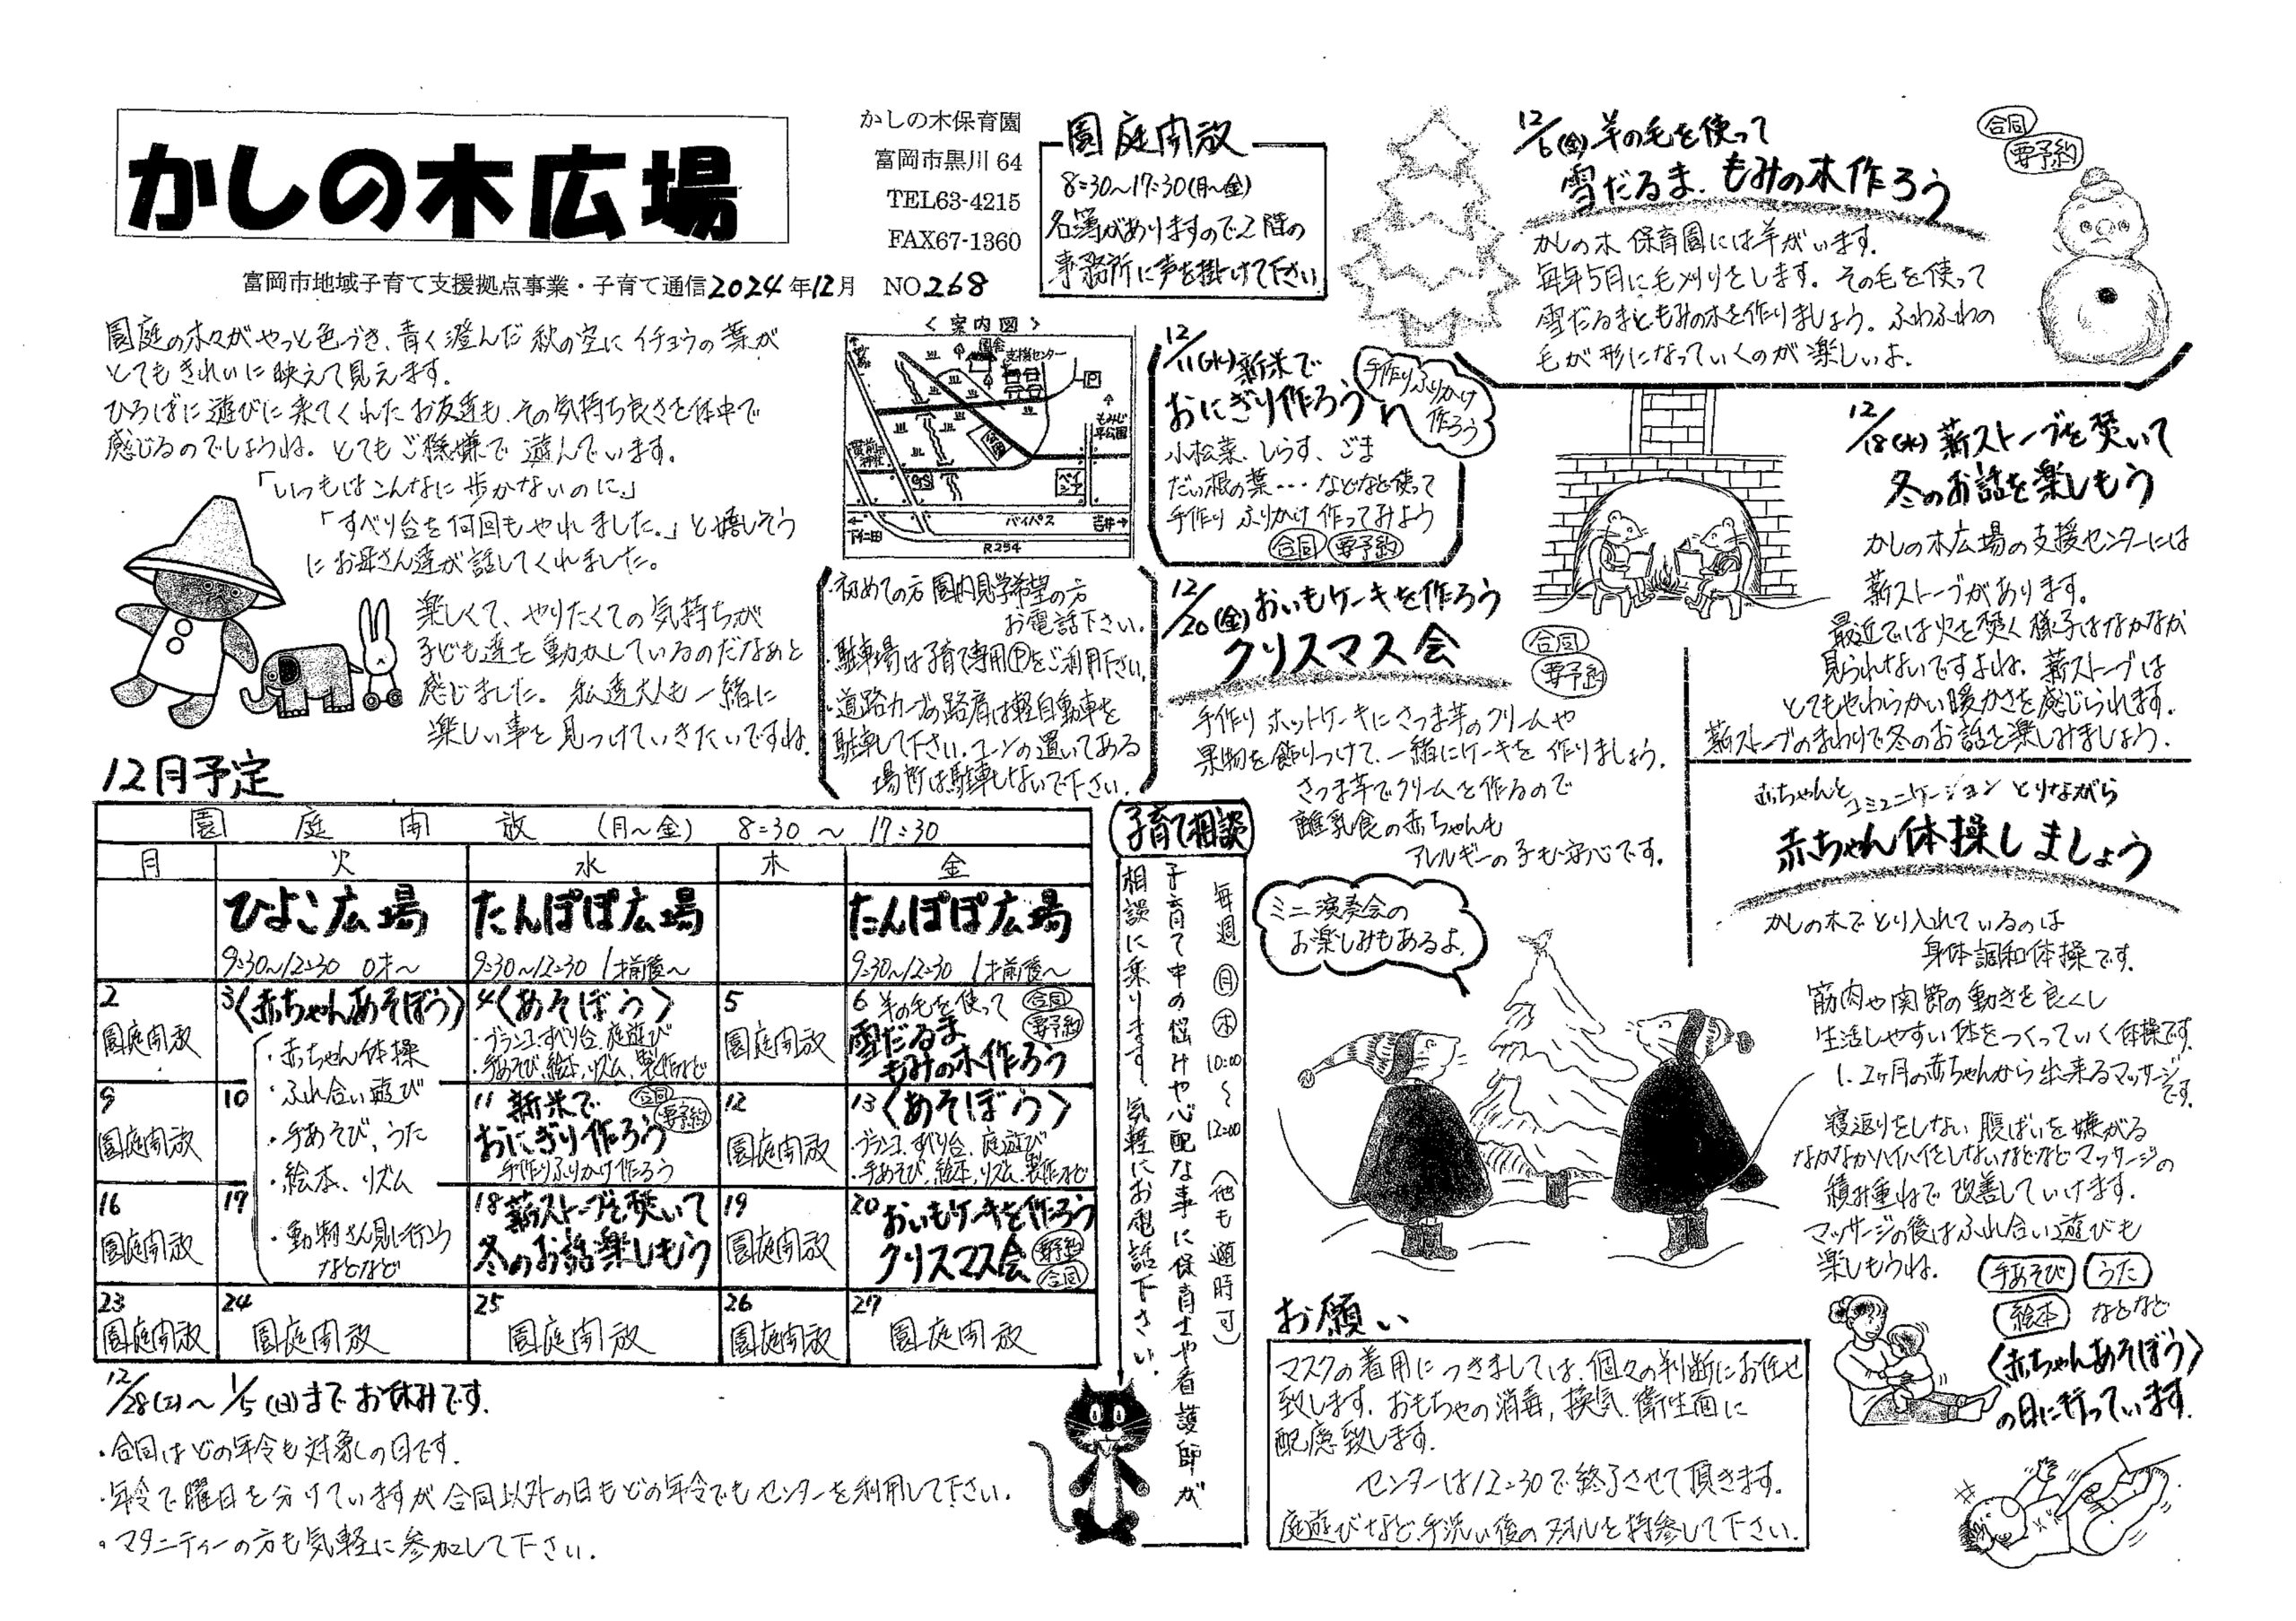 かしの木広場
かしの木保育園
富岡市黒川 64
TEL63-4215
FAX67-1360
富岡市地域子育て支援拠点事業・子育て通信2024年12月 NO268
園庭開放
8:30～17:30(月～金)
名簿がありますので2階の
事務所に声を掛けて下さい
園庭の木々がやっと色づき、青く澄んだ秋の空にイチョウの葉が
とてもきれいに映えて見えます。
ひろばに遊びに来てくれたお友達も、その気持ち良さを体中で
感じるのでしょうね。とてもご機嫌で遊んでいます。
「いつもはこんなに歩かないのに。」
「すべり台を何回もやれました。」と嬉しそう
にお母さん達が話してくれました。
楽しくて、やりたくての気持ちが
子ども達を動かしているのだなぁと
感じました。私達大人も一緒に
楽しい事を見つけていきたいですね。
＜案内図＞
園舎
支援センター
もみじ
平公園
貫前
神社
バイパス
吉井→
下仁田
R254
・初めての方 園内見学希望の方
お電話下さい。
・駐車場は子育て専用Ⓟをご利用下さい。
・道路カーブの路肩は軽自動車を
駐車して下さい。コーンの置いてある
場所は駐車しないで下さい。
12/6(金)羊の毛を使って
雪だるま、もみの木作ろう
合同
要予約
かしの木保育園には羊がいます。
毎年5月に毛刈りをします。その毛を使って
雪だるまともみの木を作りましょう。ふわふわの
毛が形になっていくのが楽しいよ。
12/11(水)新米で
おにぎり作ろう
手作りふりかけ
作ろう
小松菜、しらす、ごま
だい根の葉…などなど使って
手作りふりかけ作ってみよう
合同 要予約
12/18(水)薪ストーブを焚いて
冬のお話を楽しもう
かしの木広場の支援センターには
薪ストーブがあります。
最近では火を焚く様子はなかなか
見られないですよね。薪ストーブは
とてもやわらかい暖かさを感じられます。
薪ストーブのまわりで冬のお話を楽しみましょう。
12/20(金)おいもケーキを作ろう
クリスマス会
合同
要予約
手作りホットケーキにさつま芋のクリームや
果物を飾りつけて、一緒にケーキを作りましょう。
さつま芋でクリームを作るので
離乳食の赤ちゃんも
アレルギーの子も安心です。
ミニ演奏会の
お楽しみもあるよ。
赤ちゃんとコミュニケーションとりながら
赤ちゃん体操しましょう
かしの木でとり入れているのは
身体調和体操です。
筋肉や関節の動きを良くし
生活しやすい体をつくっていく体操です。
1、2ヶ月の赤ちゃんから出来るマッサージ
です。
寝返りをしない 腹ばいを嫌がる
なかなかハイハイをしないなどなどマッサージの
積み重ねで改善していけます。
マッサージの後はふれ合い遊びも
楽しもうね。 手あそび うた
絵本 などなど
〈赤ちゃんあそぼう〉
の日に行っています。
12月予定
園庭開放 (月～金) 8:30～17:30
月 火 水 木 金
ひよこ広場 たんぽぽ広場 たんぽぽ広場
9:30～12:30 0才～ 9:30～12:30 1才前後～ 9:30～12:30 1才前後～
2
園庭開放
3〈赤ちゃんあそぼう〉
・赤ちゃん体操
・ふれ合い遊び
・手あそび、うた
・絵本、リズム
・動物さん見に行こう
などなど
4〈あそぼう〉
・ブランコ、すべり台、庭遊び
・手あそび、絵本、リズム、製作など
5
園庭開放
6 羊の毛を使って 合同
雪だるま 要予約
もみの木作ろう
9
園庭開放
10
11 新米で 合同
おにぎり作ろう 要予約
手作りふりかけ作ろう
12
園庭開放
13〈あそぼう〉
・ブランコ、すべり台、庭遊び
・手あそび、絵本、リズム、製作など
16
園庭開放
17
18薪ストーブを焚いて
冬のお話楽しもう
19
園庭開放
20おいもケーキを作ろう
クリスマス会 要予約
合同
23
園庭開放
24
園庭開放
25
園庭開放
26
園庭開放
27
園庭開放
12/28(土)～1/5(日)までお休みです。
・合同はどの年令も対象の日です。
・年令で曜日を分けていますが合同以外の日もどの年令でもセンターを利用して下さい。
・マタニティーの方も気軽に参加して下さい。
子育て相談
毎週 月 木 10:00～12:00(他も適時可)
子育て中の悩みや心配な事に保育士や看護師が
相談に乗ります。気軽にお電話下さい。
お願い
マスクの着用につきましては、個々の判断にお任せ
致します。おもちゃの消毒、換気、衛生面に
配慮致します。
センターは12:30で終了させて頂きます。
庭遊びなど、手洗い後のタオルを持参して下さい。